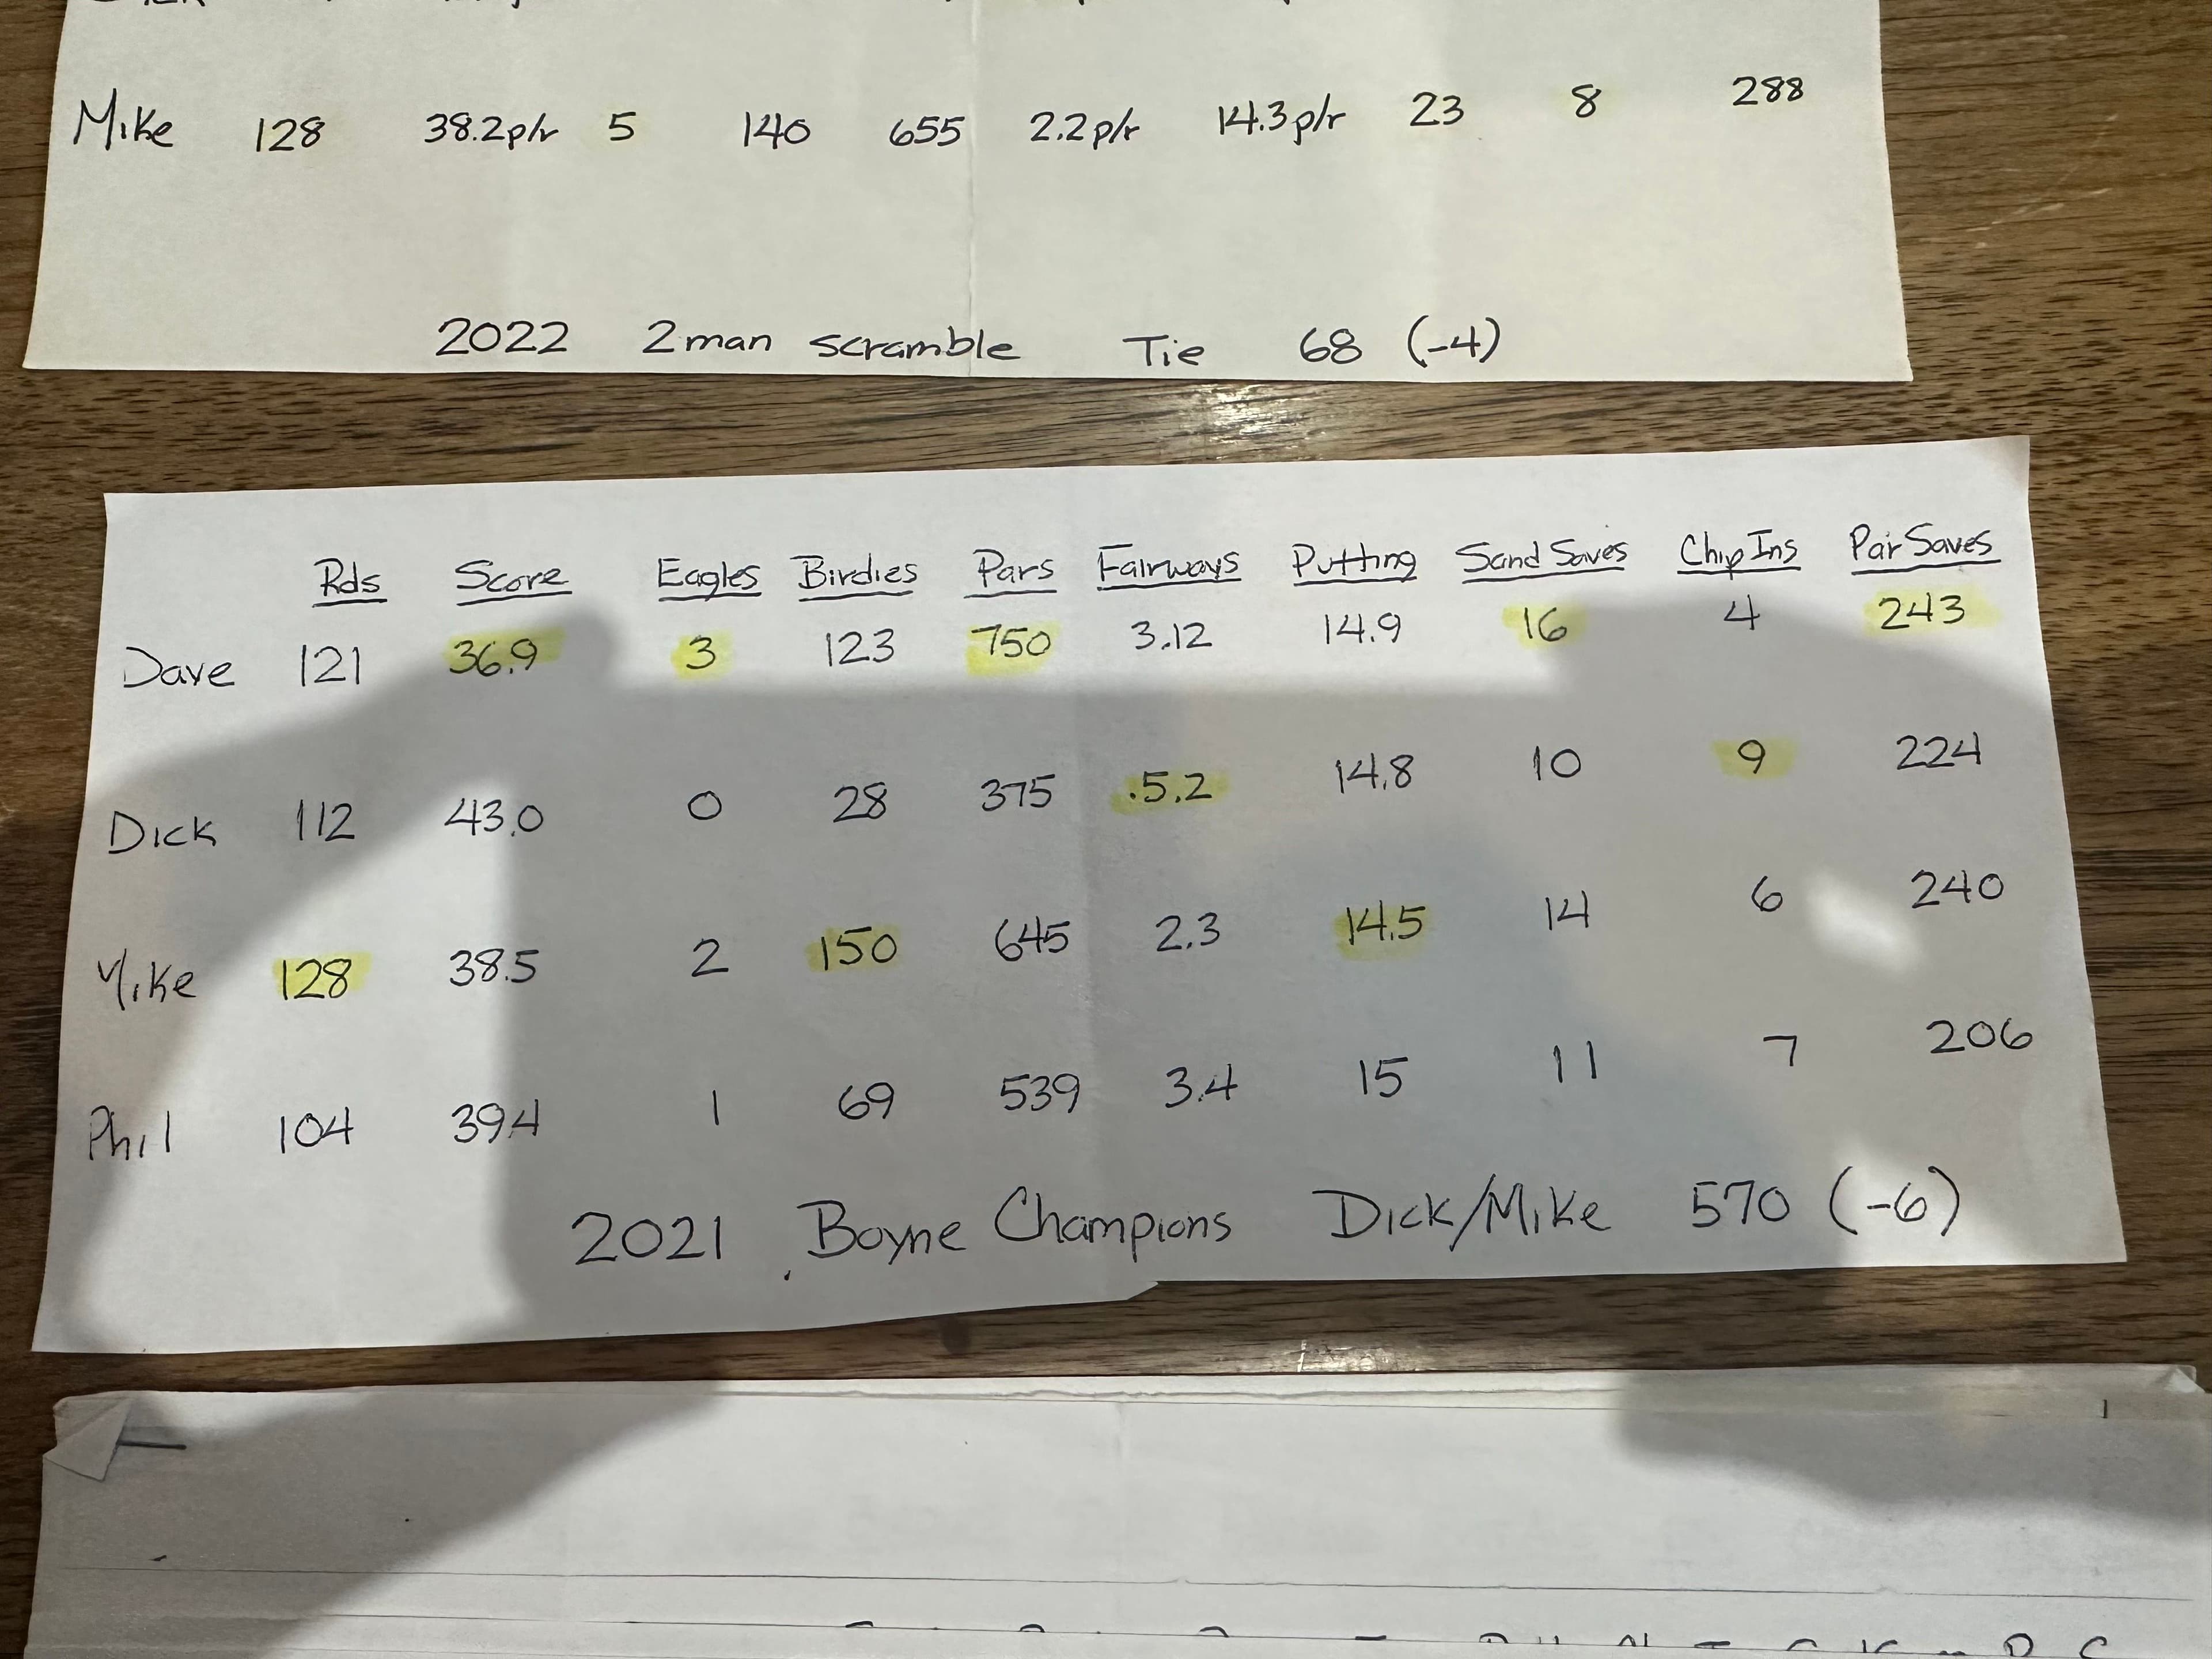 Mike 128 38.2p/r 5 140 655 2.2p/r 14.3p/r 23 8 288
2022 2man scramble Tie 68 (-4)
Rds Score Eagles Birdies Pars Fairways Putting Sand Saves Chip Ins Par Saves
Dave 121 36.9 3 123 750 3.12 14.9 16 4 243
Dick 112 43.0 0 28 375 .5.2 14.8 10 9 224
Mike 128 38.5 2 150 645 2.3 14.5 14 6 240
Phil 104 39.4 1 69 539 3.4 15 11 7 206
2021 Boyne Champions Dick/Mike 570 (-6)